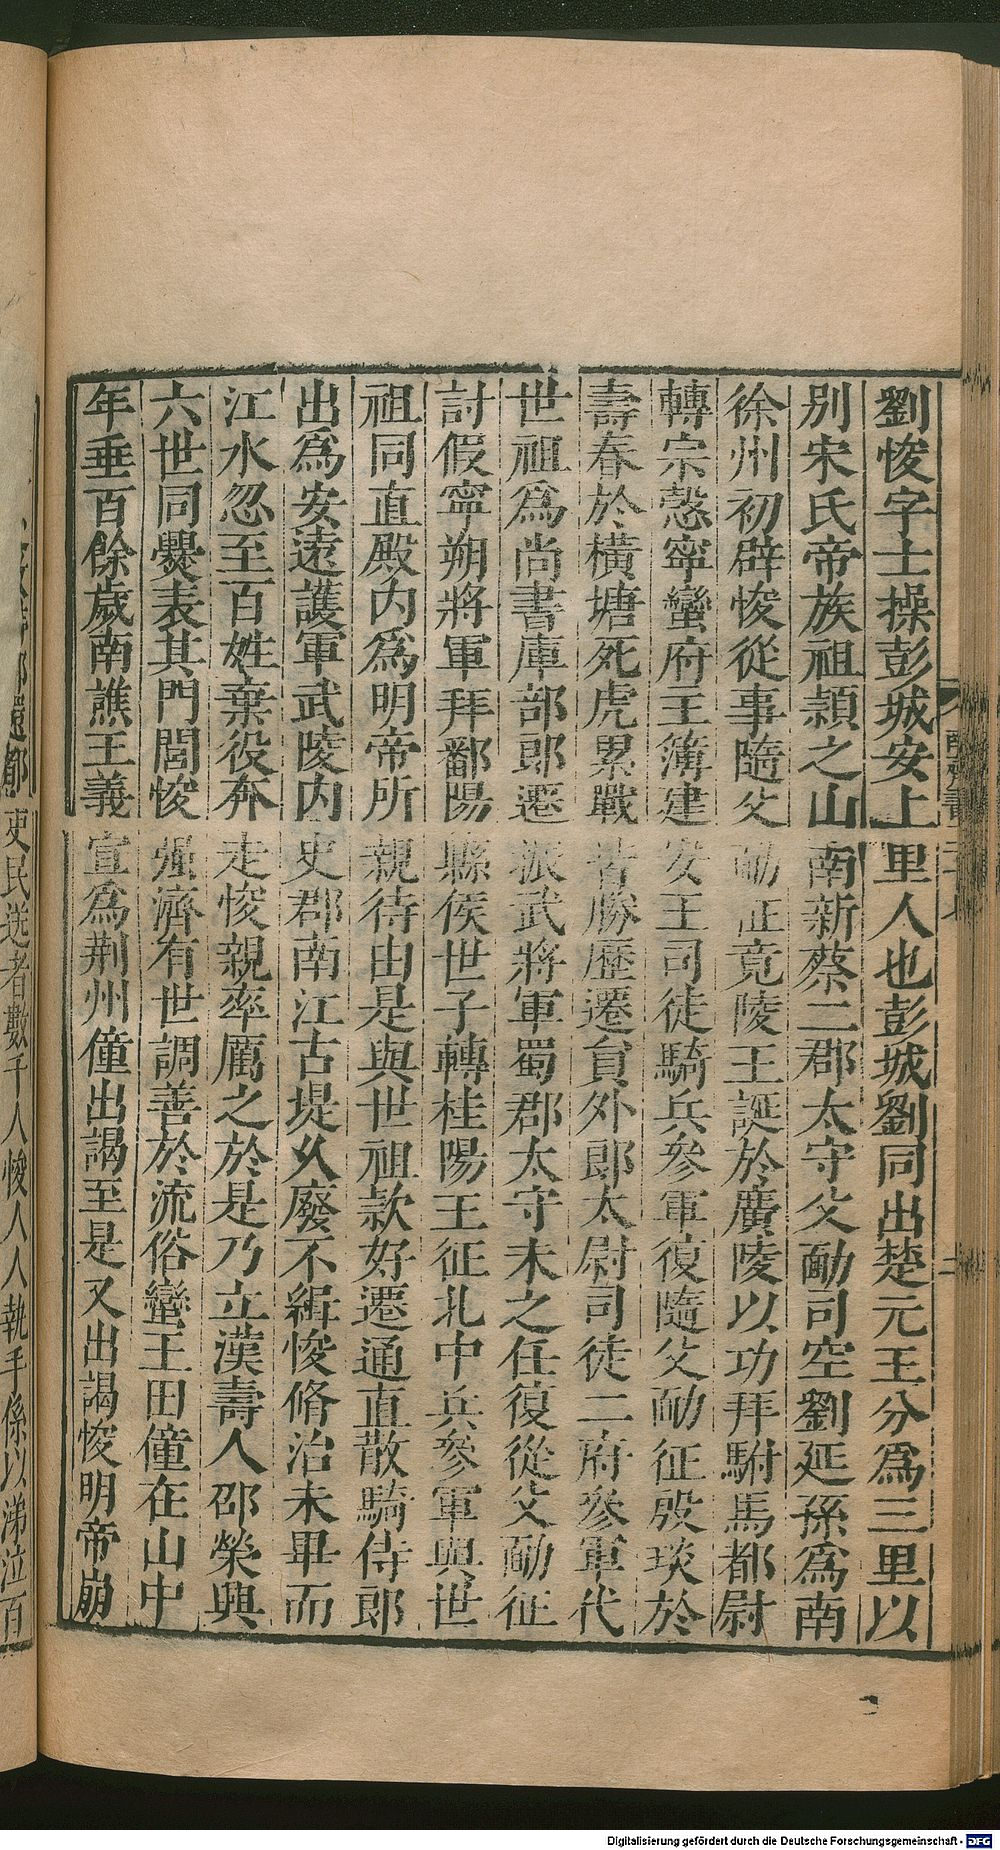 劉悛字士操彭城安上里人也彭城劉同出楚元王分為三里以
别宋氏帝族祖頴之山南新蔡二郡太守父勔司空劉延孫為南
徐州初辟悛從事隨父勔征竟陵王誕於廣陵以功拜駙馬都尉
轉宗愨寧蠻府主簿建安王司徒騎兵參軍復隨父勔征殷琰於
壽春於橫塘死虎累戰皆勝歷遷貟外郎太尉司徒二府參軍代
世祖為尚書庫部郎遷振武將軍蜀郡太守未之任復從父勔征
討假寧朔將軍拜鄱陽縣侯世子轉桂陽王征北中兵參軍與世
祖同直殿內為明帝所親待由是與世祖款好遷通直散騎侍郎
出為安遠護軍武陵內史郡南江古堤乆廢不緝悛脩治未畢而
江水忽至百姓棄役奔走悛親率厲之於是乃立漢壽人邵榮興
六世同爨表其門閭悛強濟有世調善於流俗蠻王田僮在山中
年垂百餘歲南譙王義宣為荊州僮出謁至是又出謁悛明帝崩
郡還都吏民送者數千人悛人人執手係以涕泣百
Digitalisierung gefördert durch die Deutsche Forschungsgemeinschaft - DFG